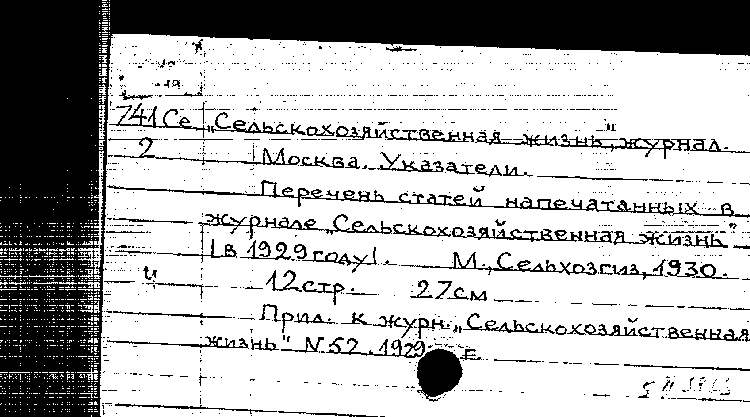 741Се „Сельскохозяйственная жизнь", журнал.
2 Москва. Указатели.
Перечень статей напечатанных в
журнале „Сельскохозяйственная жизнь"
|в 1929 году|. М., Сельхозгиз, 1930.
и 12 стр. 27 см
Прил. к журн. „Сельскохозяйственная
жизнь" N 52. 1929 г.